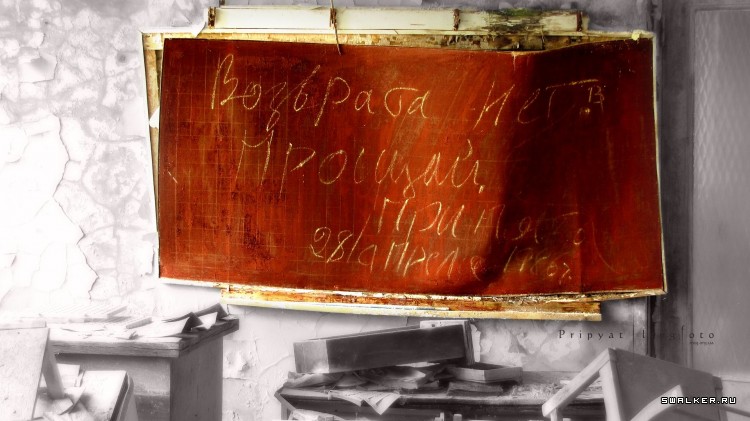 Возврата нет
Прощай
Припять
28 апреля 1986 г.
Pripyat
foto
SWALKER.RU